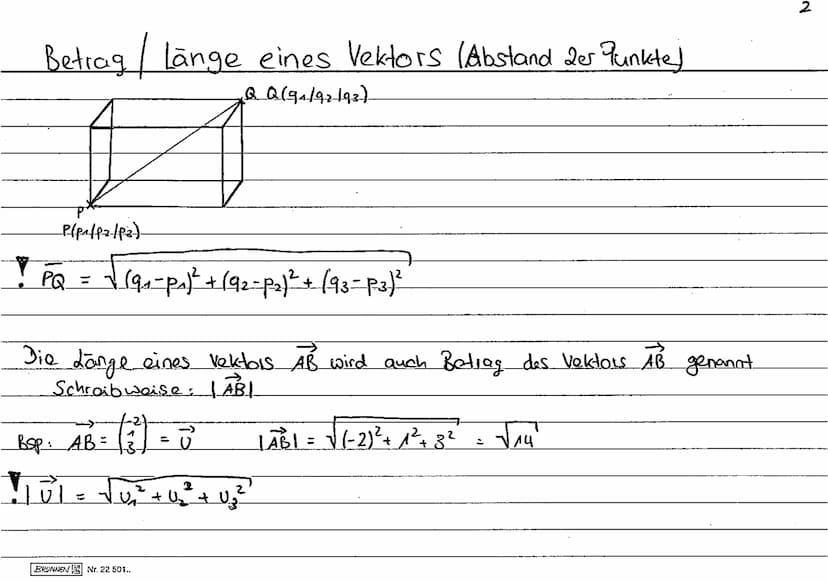 2
Betrag / Länge eines Vektors (Abstand 2er Punkte)
Q Q(q1/q2/q3)
P
P(p1/p2/p3)
! PQ̅ = √((q₁-p₁)² + (q₂-p₂)² + (q₃-p₃)²)
Die Länge eines Vektors AB→ wird auch Betrag des Vektors AB→ genannt
Schreibweise: |AB→|
Bsp: AB→ = (-2 1 3) = U→ |AB→| = √((-2)² + 1² + 3²) = √14
! |U→| = √(U₁² + U₂² + U₃²)
BRUNNEN Nr. 22 501..